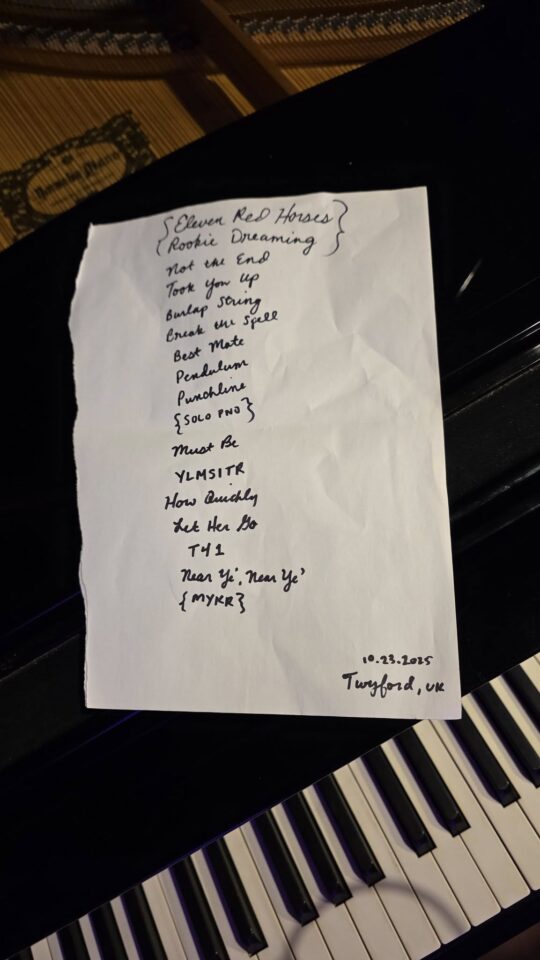 {Eleven Red Horses}
{Rookie Dreaming}
Not the End
Took You Up
Burlap String
Break the Spell
Best Mate
Pendulum
Punchline
{SOLO PNO}
Must Be
YLMSITR
How Quickly
Let Her Go
T41
Near Ye', Near Ye'
{MYKR}
10.23.2025
Twyford, UK